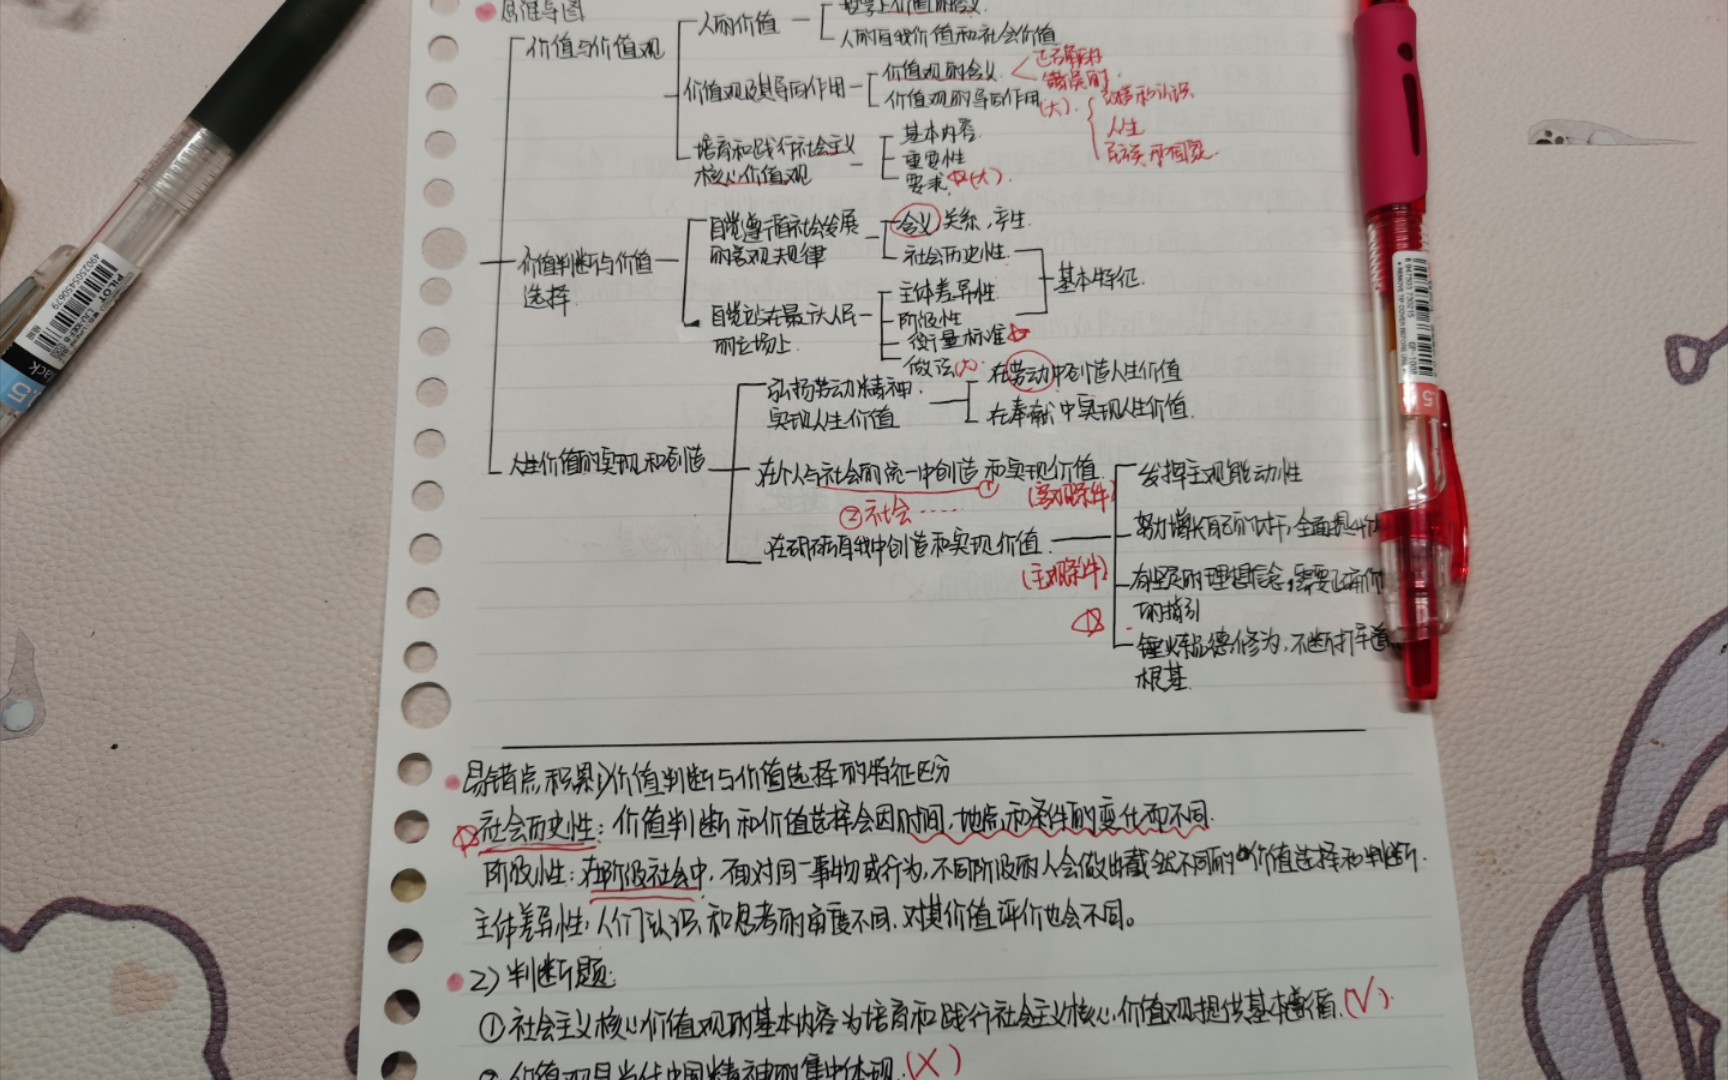 思维导图
价值与价值观
人的价值
哲学上价值的含义
人的自我价值和社会价值
价值观及其导向作用
价值观的含义
正确的
错误的
价值观的导向作用(大)
人生
民族和国家
培育和践行社会主义
核心价值观
基本内容
重要性
要求(大)
价值判断与价值
选择
自觉遵循社会发展
的客观规律
含义,关系,产生
社会历史性
基本特征
自觉站在最广大人民
的立场上
主体差异性
阶级性
衡量标准
做法(大)
人生价值的实现和创造
弘扬劳动精神
实现人生价值
在劳动中创造人生价值
在奉献中实现人生价值
在个人与社会的统一中创造和实现价值
① (客观条件)
②社会……
在砥砺自我中创造和实现价值
(主观条件)
发挥主观能动性
努力增长自己的才干,全面提
有坚定的理想信念,需要正确价
的指引
锤炼品德修为,不断打牢道
根基
易错点积累1)价值判断与价值选择的特征区分
社会历史性:价值判断和价值选择会因时间,地点和条件的变化而不同.
阶级性:在阶级社会中,面对同一事物或行为,不同阶级的人会做出截然不同的价值选择和判断.
主体差异性:人们认识和思考的角度不同,对其价值评价也会不同。
2)判断题:
①社会主义核心价值观的基本内容为培育和践行社会主义核心价值观提供基本遵循.(√)
②价值观是当代中国精神的集中体现.(×)
PILOT
4902505450679
Black